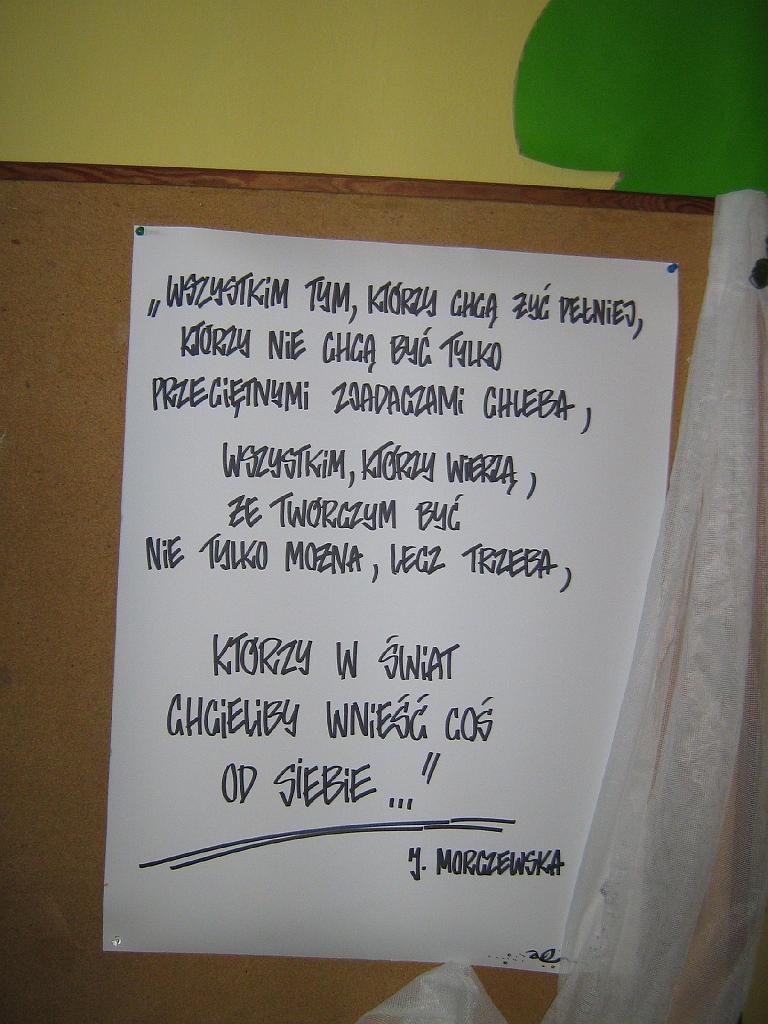 „WSZYSTKIM TYM, KTÓRZY CHCĄ ŻYĆ PEŁNIEJ,
KTÓRZY NIE CHCĄ BYĆ TYLKO
PRZECIĘTNYMI ZJADACZAMI CHLEBA,
WSZYSTKIM, KTÓRZY WIERZĄ,
ŻE TWÓRCZYM BYĆ
NIE TYLKO MOŻNA, LECZ TRZEBA,
KTÓRZY W ŚWIAT
CHCIELIBY WNIEŚĆ COŚ
OD SIEBIE..."
J. MORCZEWSKA